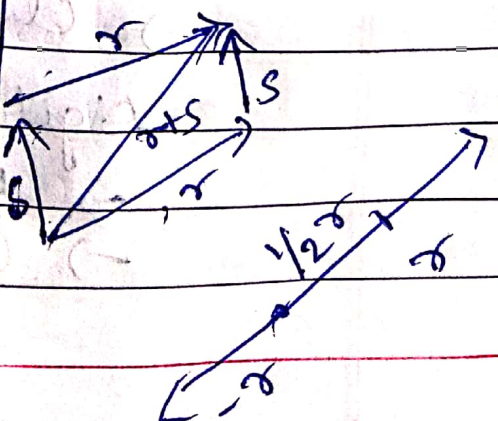 r
s
r+s
s
r
1/2 r
r
-r